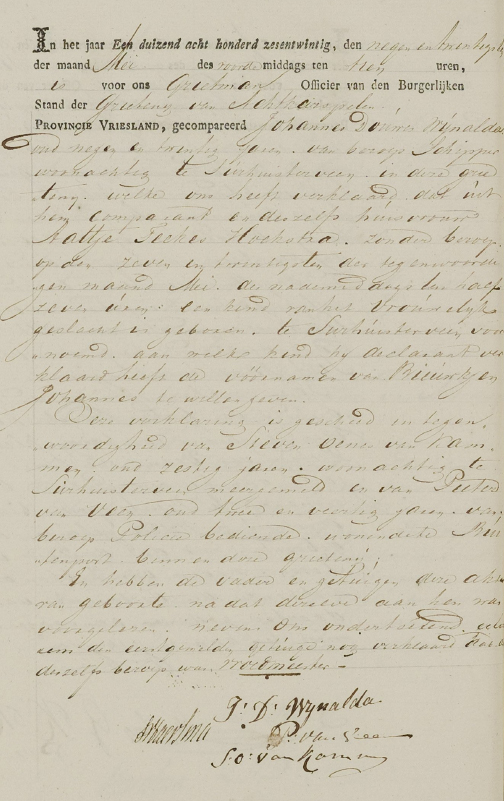 In het jaar Een duizend acht honderd zesentwintig, den negen en twintigste
der maand Mei des voormiddags ten tien uren,
is voor ons Grietman Officier van den Burgerlijken
Stand der Grietenij van Achtkarspelen
PROVINCIE VRIESLAND, gecompareerd Johannes Douwes Wijnalda
oud negen en twintig jaren van beroep Schipper
woonachtig te Surhuisterveen in deze griet
tenij welke ons heeft verklaard dat uit
hem comparant en deszelfs huisvrouw
Aaltje Feekes Hoekstra zonder beroep
op den zeven en twintigsten der tegenwoordi
gen maand Mei des nademiddags ten half
zeven uren een kind van het Vrouwelijk
geslacht is geboren te Surhuisterveen voor
noemd aan welke kind hij declarant ver
klaard heeft de voornamen van
Johannes te willen geven.
Deze verklaring is geschied in tegen
woordigheid van Steven van Kam
men oud zestig jaren woonachtig te
Surhuisterveen meergemeld en van Pieter
van Veen oud twee en veertig jaren van
beroep Policie bediende woonende te Bui
tenpost binnen deze grietenij
En hebben de vader en getuigen deze akte
van geboorte na dat dezelve aan hen was
voorgelezen nevens ons onderteekend
den eerstgemelden getuige nog verklaard
deszelfs beroep van
J. D. Wynalda
P. van Veen
S. O. van Kammen